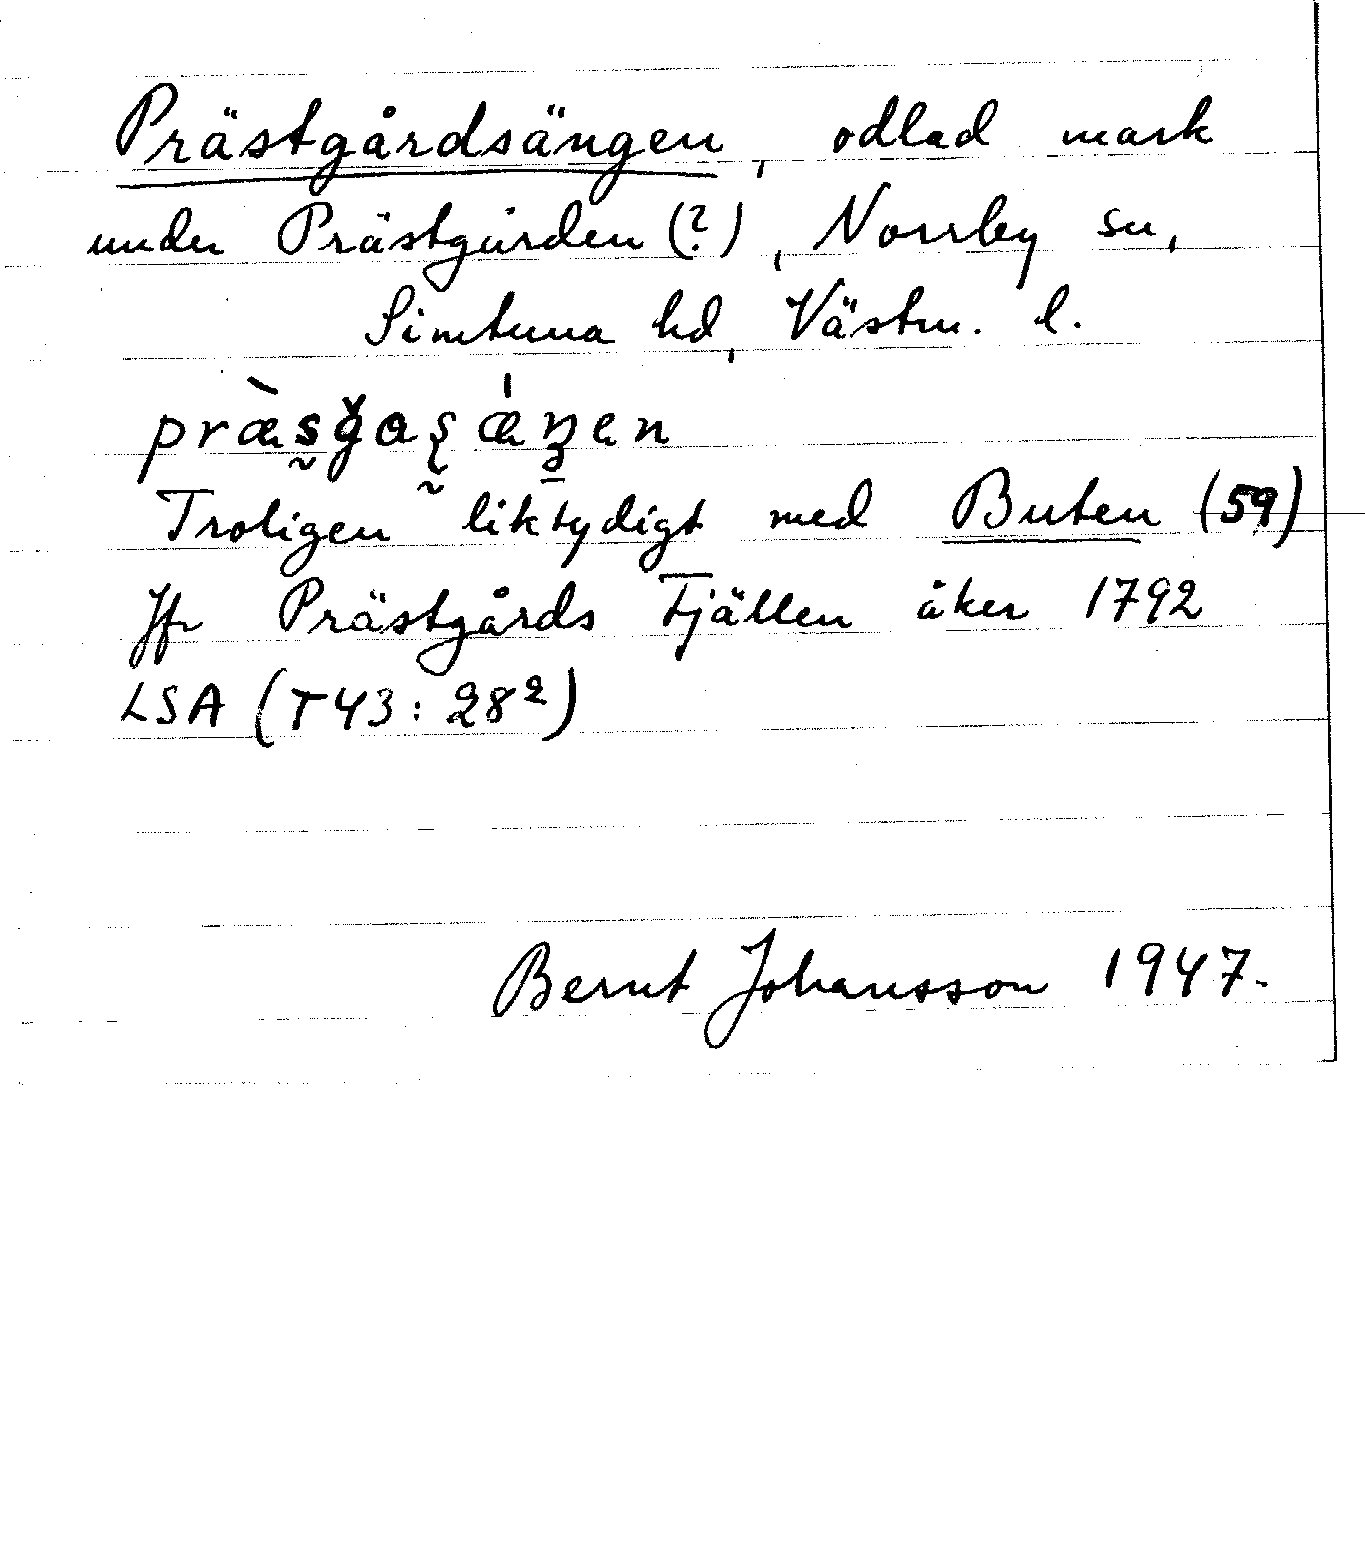 Prästgårdsängen, odlad mark
under Prästgården (?), Norrby sn,
Simtuna hd, Västm. l.
Troligen liktydigt med Buten (59)
Jfr Prästgårds Tjällen åker 1792
LSA (T43:28²)
Bernt Johansson 1947.